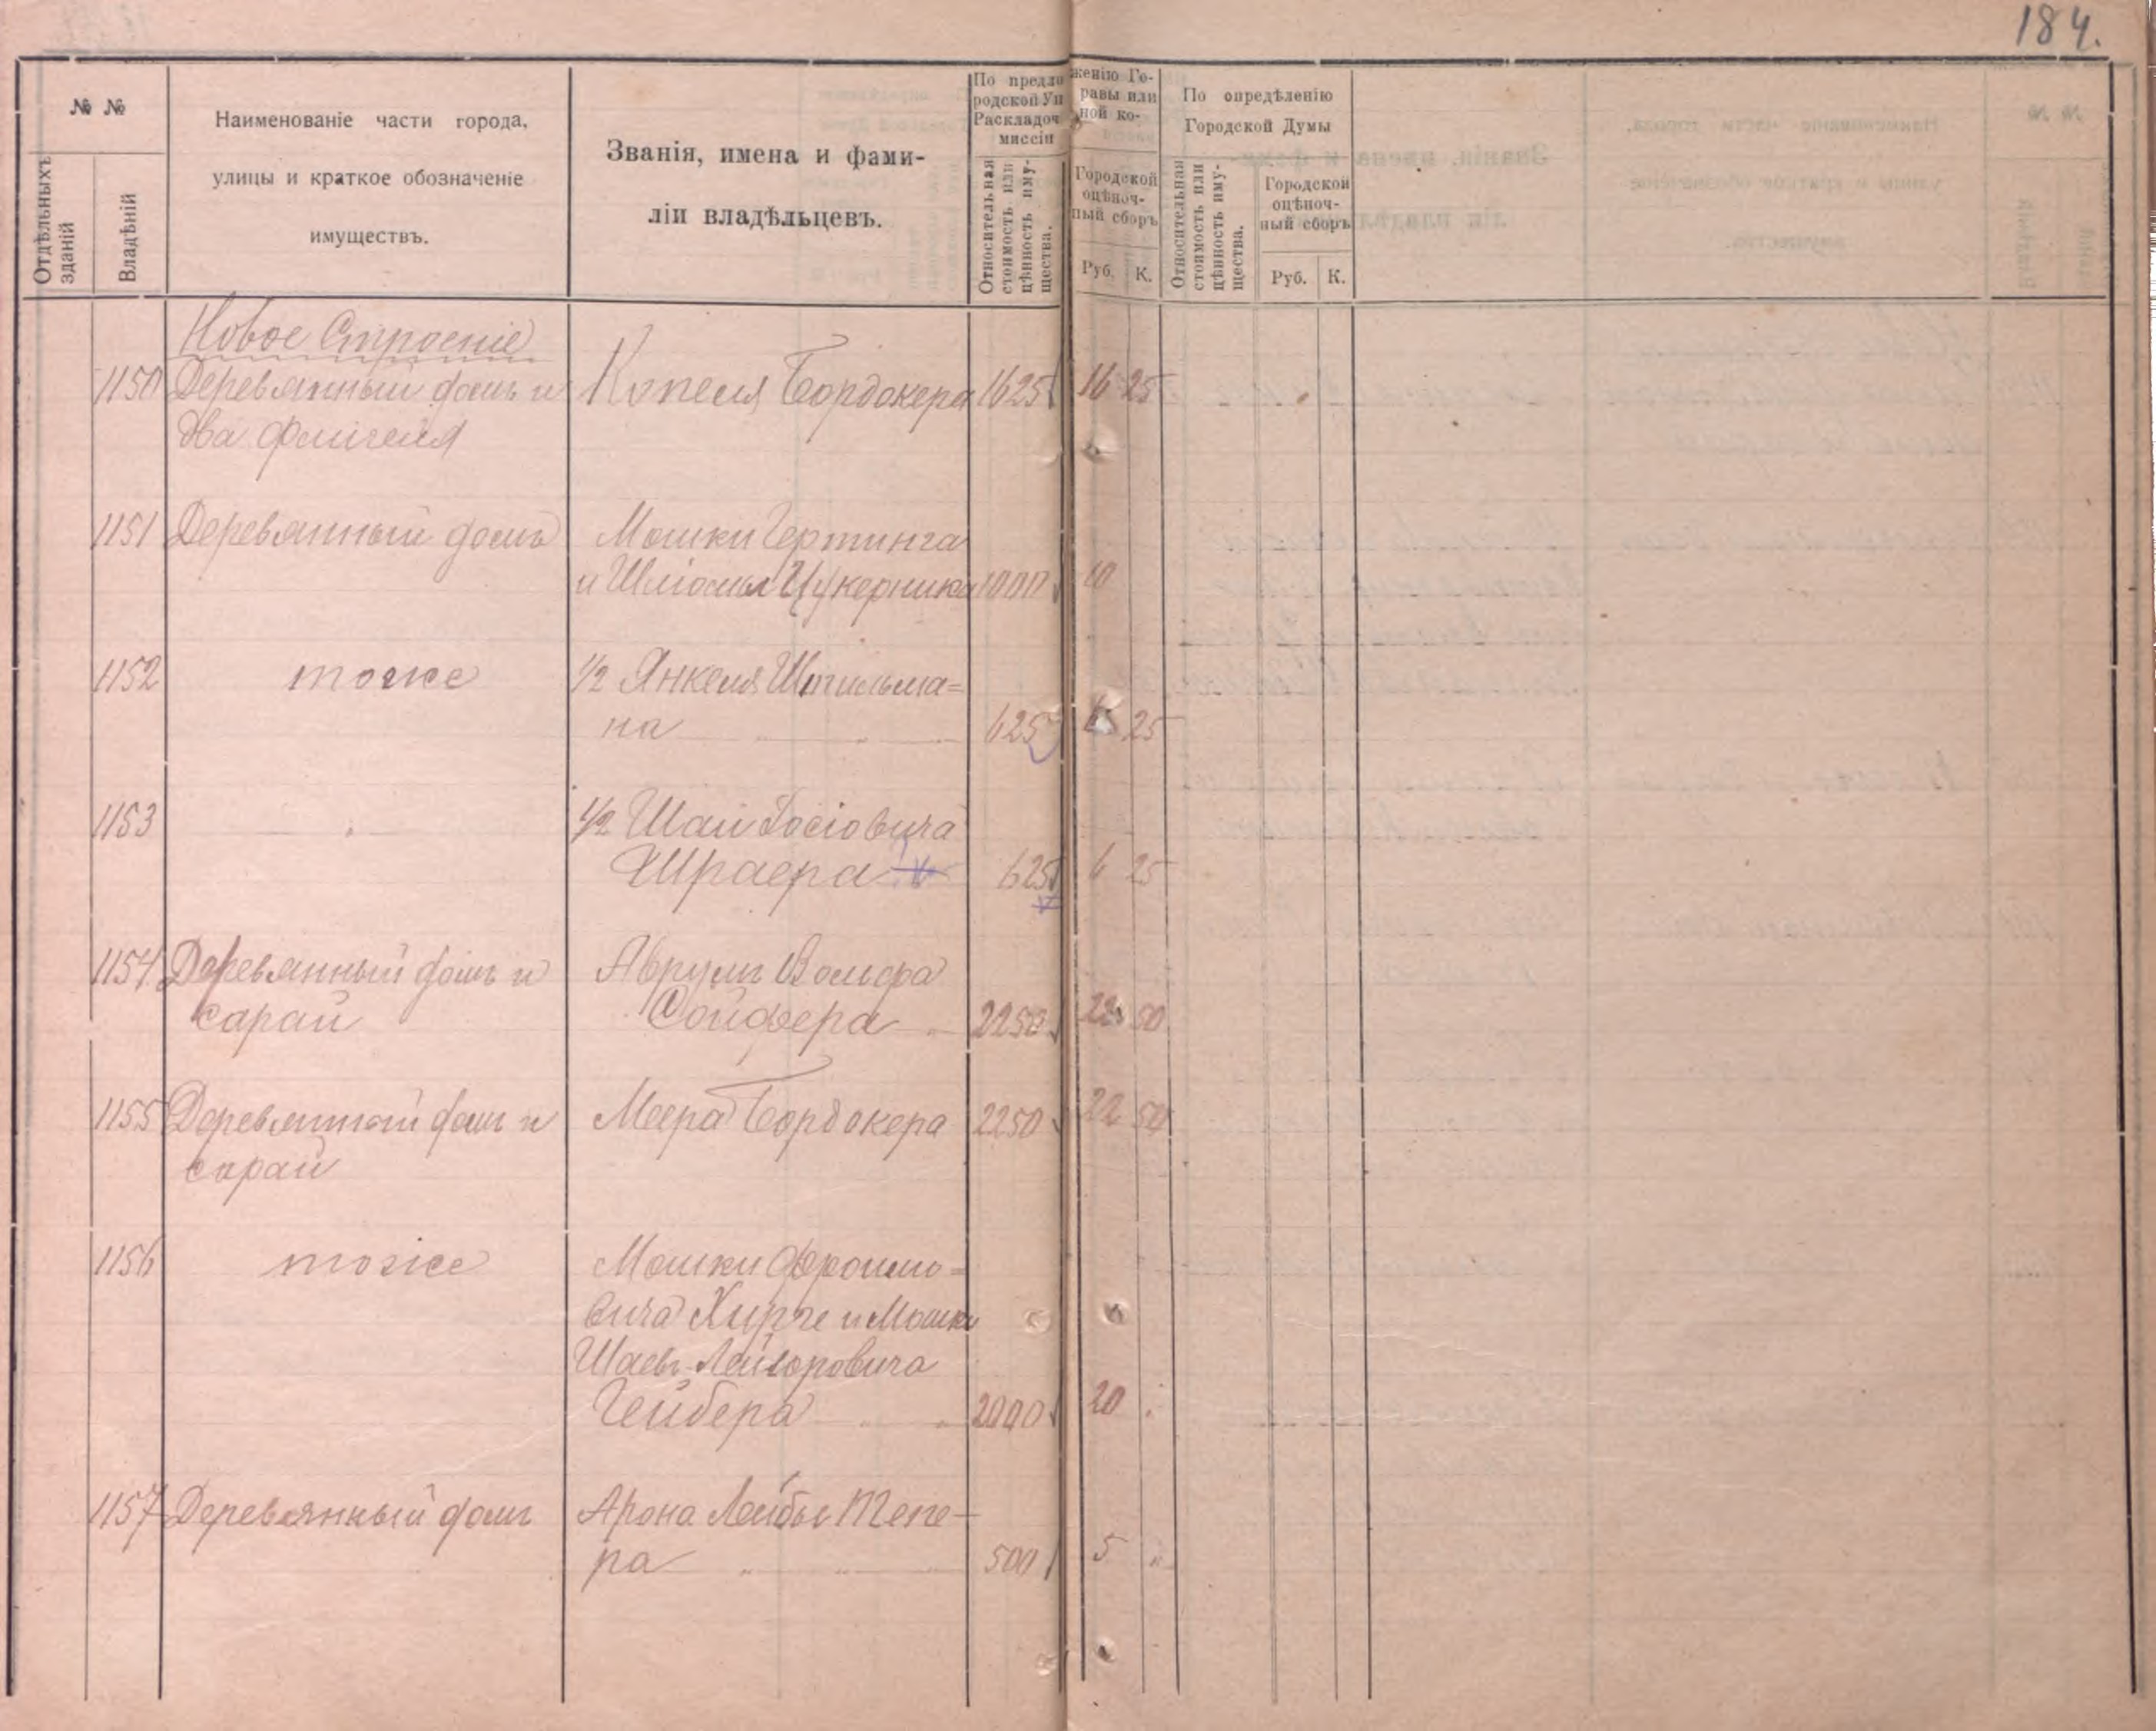 184.
№ №
Отдѣльныхъ зданій
Владѣній
Наименованіе части города,
улицы и краткое обозначеніе
имуществъ.
Званія, имена и фами-
ліи владѣльцевъ.
По предло женію Го-
родской Уп равы или
Раскладоч ной ко-
миссіи
Относительная
стоимость или
цѣнность иму-
щества.
Городской
оцѣноч-
ный сборъ
Руб. К.
По опредѣленію
Городской Думы
Относительная
стоимость или
цѣнность иму-
щества.
Городской
оцѣноч-
ный сборъ
Руб. К.
Новое Строеніе
1150 Деревянный домъ и Копеля Бордокера 1625 16 25
два флигеля
1151 Деревянный домъ Мошки Гертинга
и Шліомы Цукерника 1000 10
1152 тоже 1/2 Янкеля Штильма=
на 625 6 25
1153 " 1/2 Шаи Іосіовича
Шраера 625 6 25
1154 Деревянный домъ и Аврумъ Вольфа
сарай Сойфера 2250 22 50
1155 Деревянный домъ и Меера Бордокера 2250 22 50
сарай
1156 тоже Мошки Фроимо=
вича и Мошки
Шаевъ
Гейбера 2000 20
1157 Деревянный домъ Арона Лейбы Тепе-
ра 500 5 "